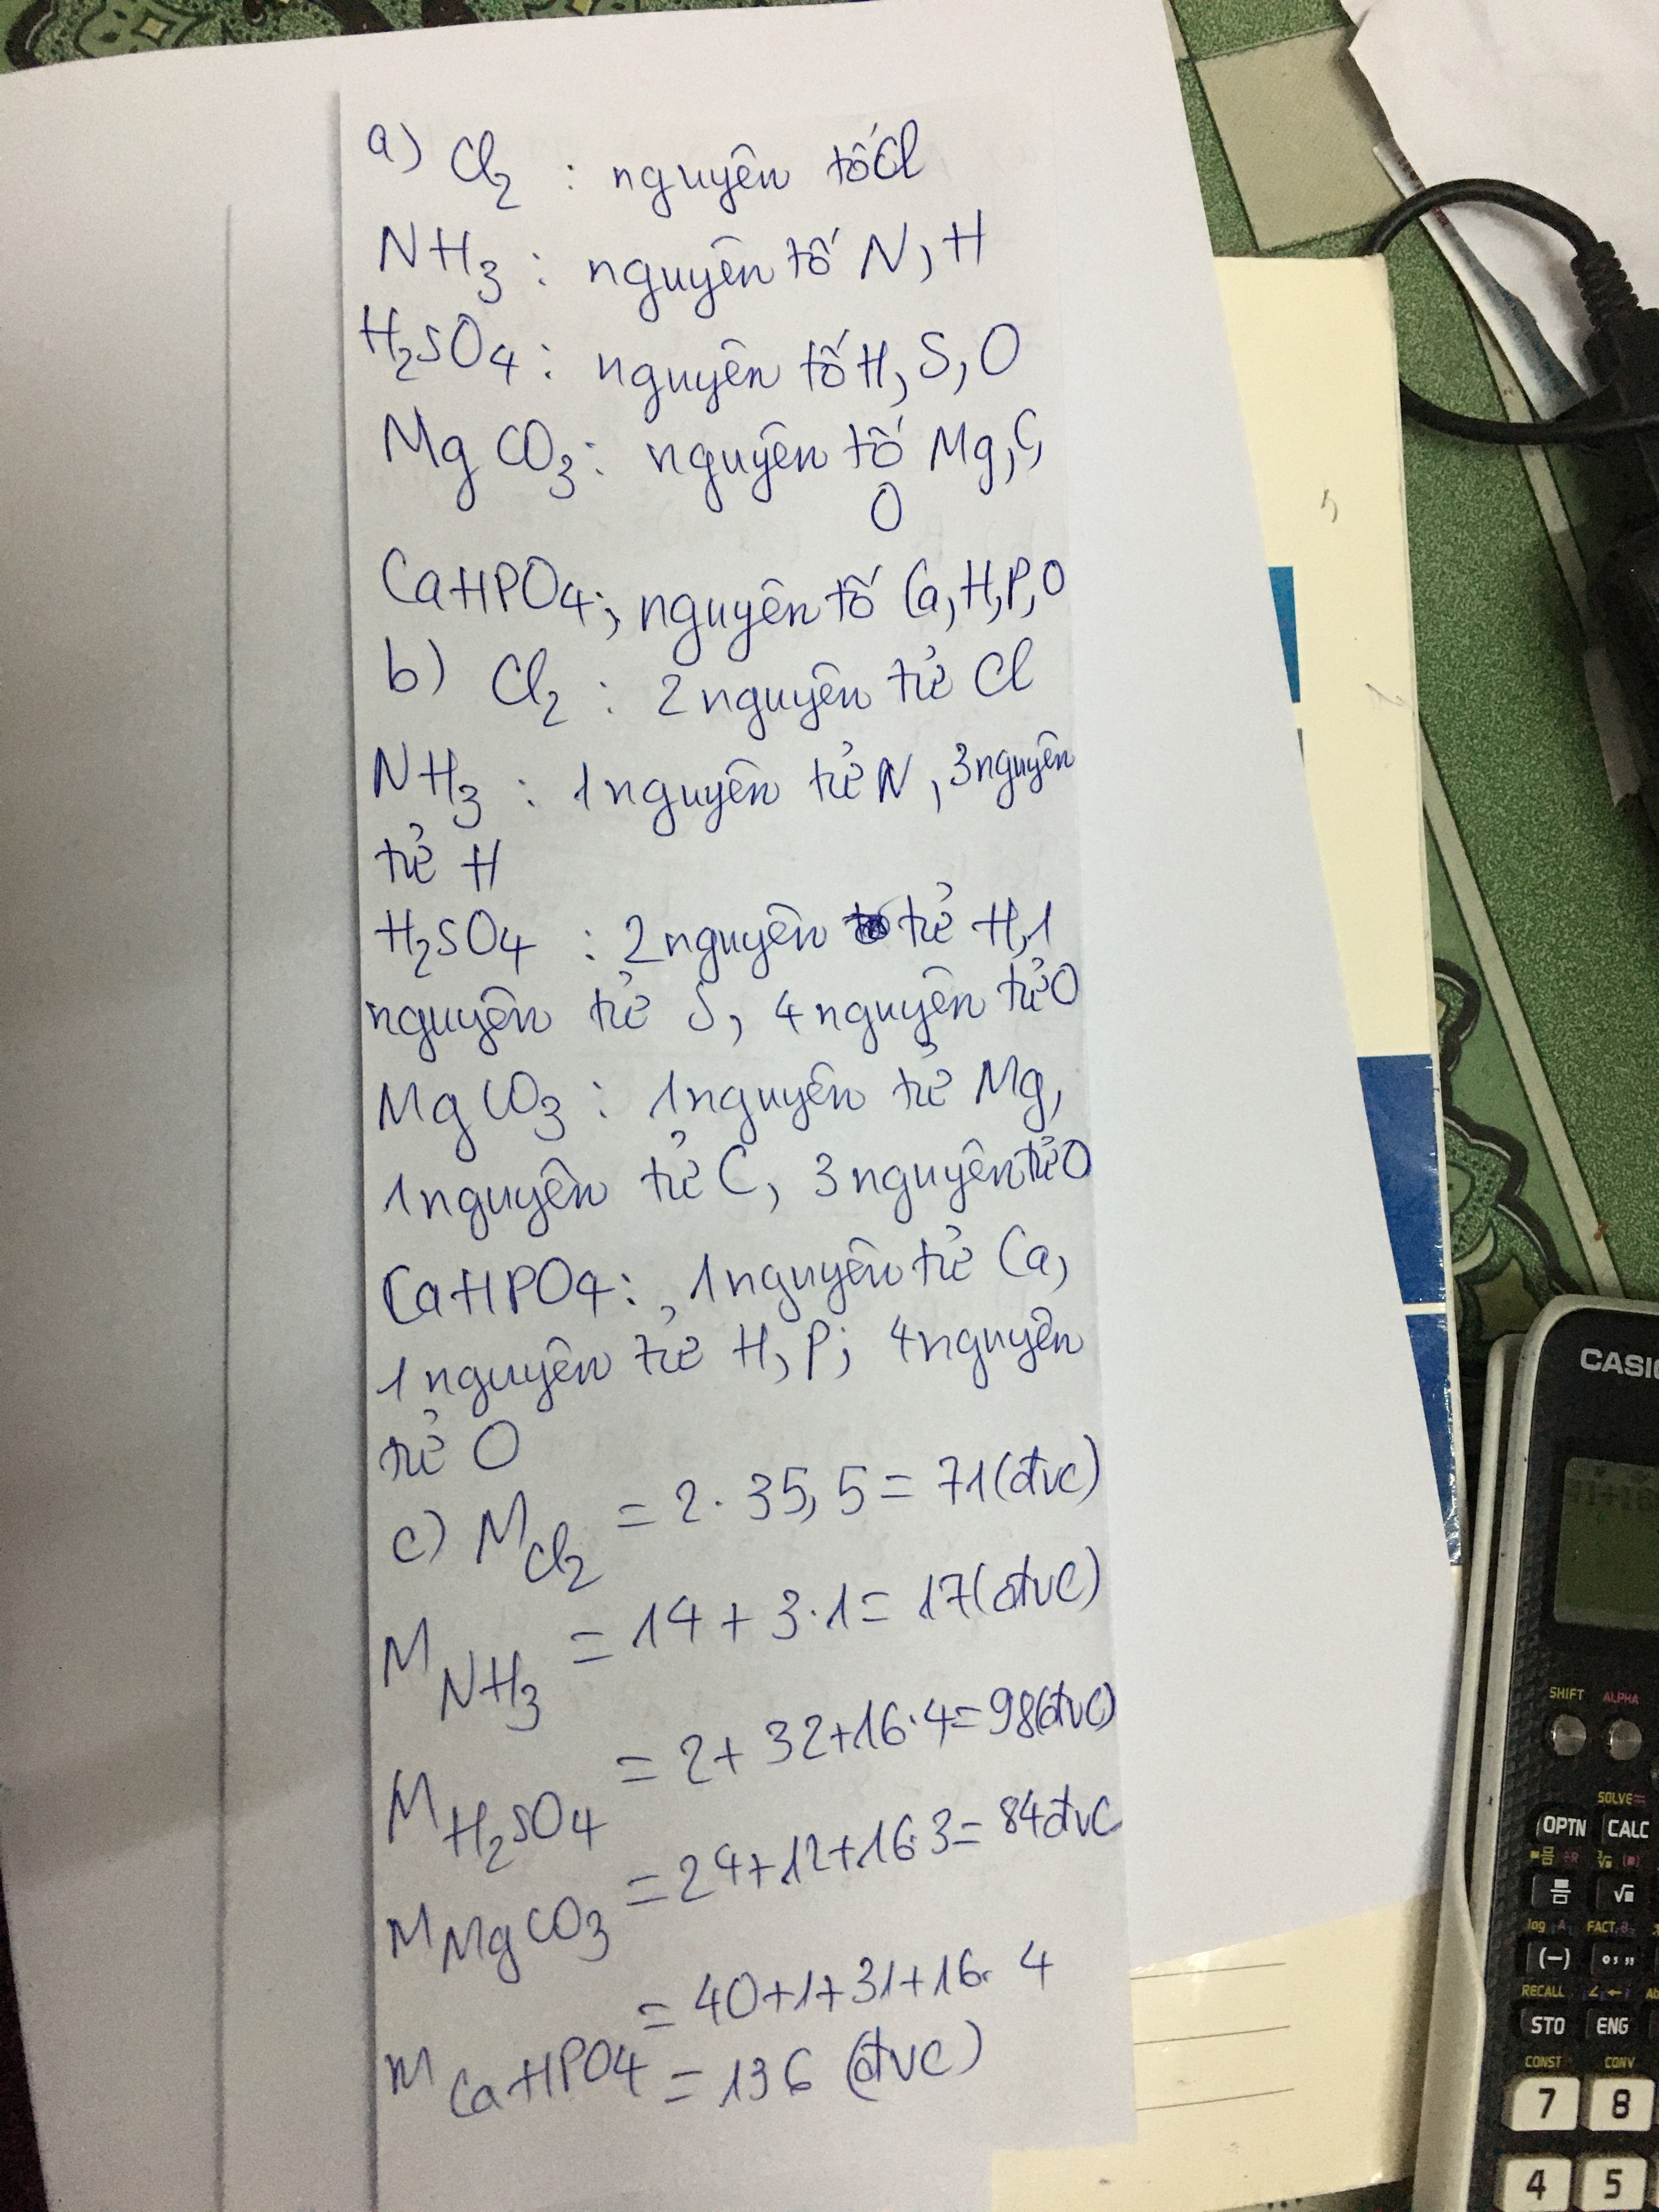 a) Cl₂ : nguyên tố Cl
NH₃ : nguyên tố N, H
H₂SO₄ : nguyên tố H, S, O
MgCO₃ : nguyên tố Mg, C,
O
CaHPO₄ ; nguyên tố Ca, H, P, O
b) Cl₂ : 2 nguyên tử Cl
NH₃ : 1 nguyên tử N, 3 nguyên
tử H
H₂SO₄ : 2 nguyên tử H, 1
nguyên tử S, 4 nguyên tử O
MgCO₃ : 1 nguyên tử Mg,
1 nguyên tử C, 3 nguyên tử O
CaHPO₄ : , 1 nguyên tử Ca,
1 nguyên tử H, P; 4 nguyên
tử O
c) M Cl₂ = 2 . 35,5 = 71 (đvc)
M NH₃ = 14 + 3.1 = 17 (đvC)
M H₂SO₄ = 2 + 32 + 16.4 = 98 (đvC)
M MgCO₃ = 24 + 12 + 16.3 = 84 đvC
M CaHPO₄ = 40 + 1 + 31 + 16. 4
= 136 (đvC)
CASIO
SHIFT ALPHA
SOLVE =
OPTN CALC
log FACT
(−)
RECALL
STO ENG
CONST CONV
7 8
4 5